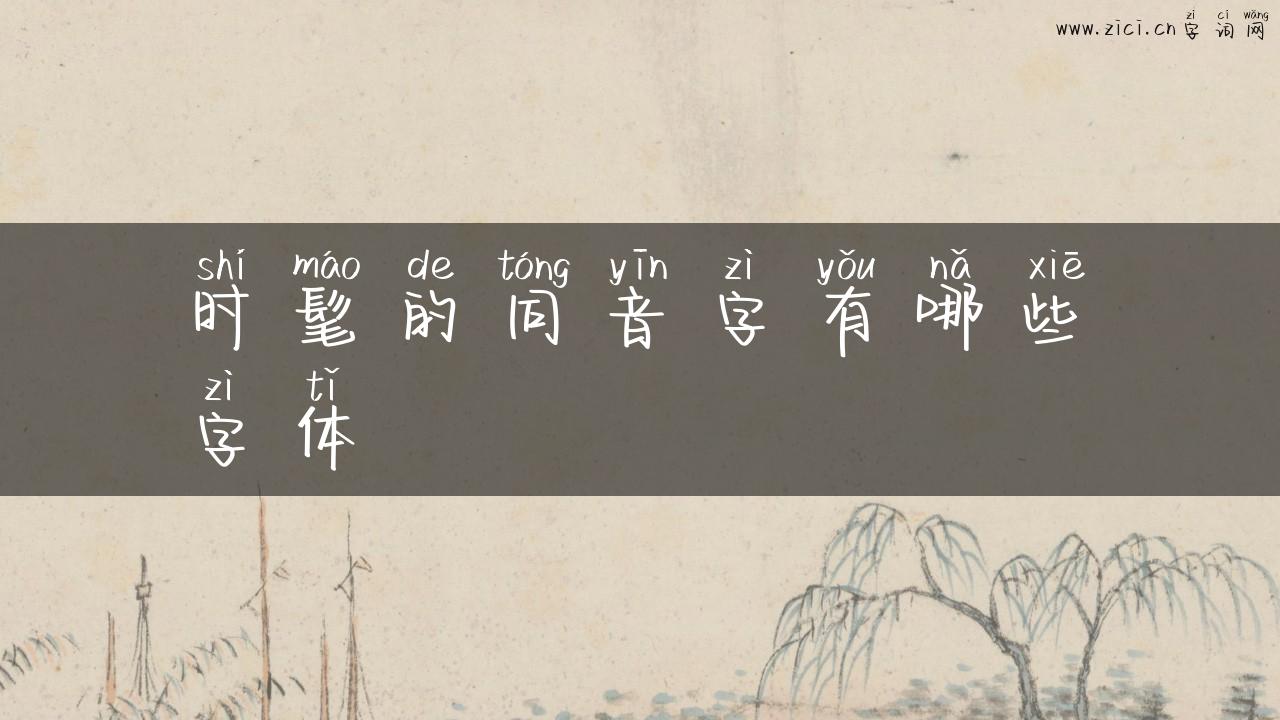 zì cí wǎng
www.zici.cn 字词网
shí máo de tóng yīn zì yǒu nǎ xiē
时髦的同音字有哪些
zì tǐ
字体